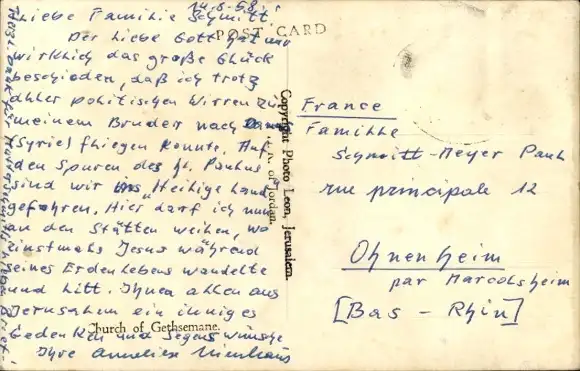 14.8.58.
POST CARD
Liebe Familie Schmitt!
Der liebe Gott hat mir
wirklich das große Glück
beschieden, daß ich trotz
aller politischen Wirren zu
meinem Bruder nach Dam
(Syrie) fliegen konnte. Auf
den Spuren des hl. Paulus
sind wir ins "Heilige Land
gefahren. Hier darf ich nun
an den Stätten weilen, wo
einstmals Jesus während
seines Erdenlebens wandelte
und litt. Ihnen allen aus
Jerusalem ein inniges
Gedenken und Segenswünsche
Ihre Annelien
Church of Gethsemane.
Copyright Photo Leon, Jerusalem.
H.K. of Jordan.
France
Famille
Schmitt-Meyer Paul
rue principale 12
Ohnenheim
par Marcolsheim
[Bas - Rhin]